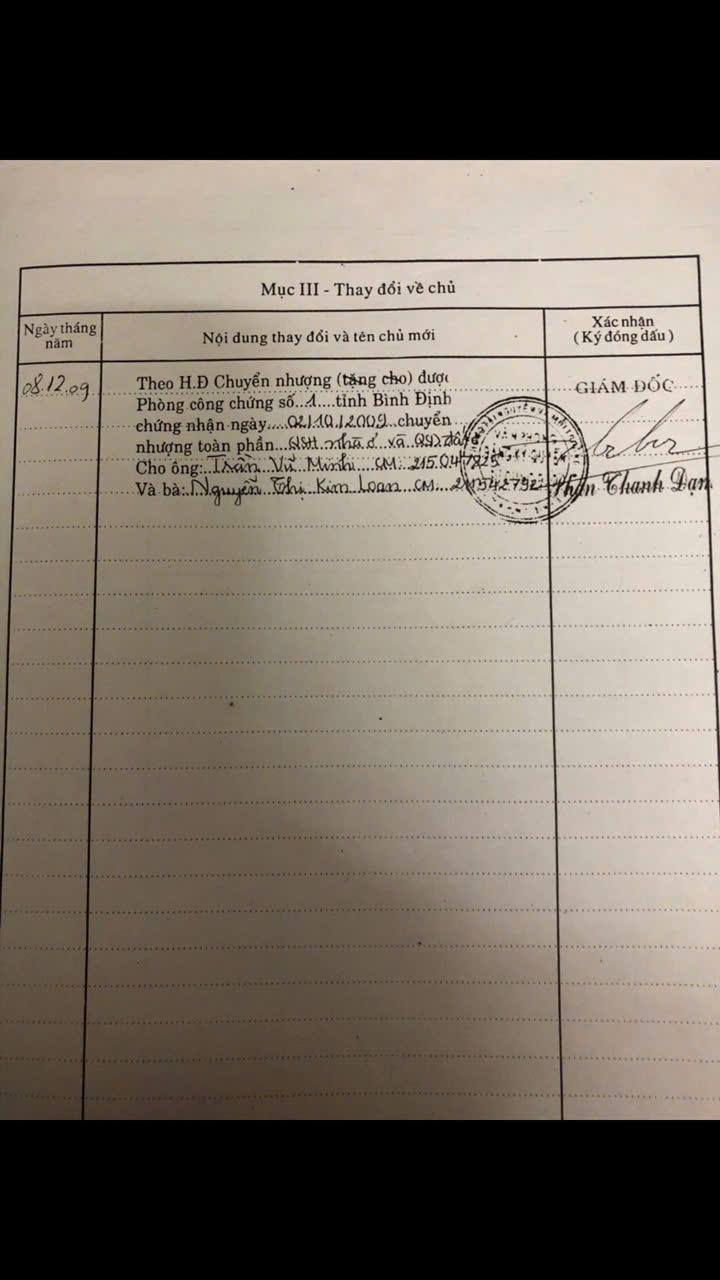 Mục III - Thay đổi về chủ
Ngày tháng năm
Nội dung thay đổi và tên chủ mới
Xác nhận
( Ký đóng dấu )
08.12.09
Theo H.Đ Chuyển nhượng (tặng cho) được
Phòng công chứng số..1....tỉnh Bình Định
chứng nhận ngày....02/10/2009..chuyển
nhượng toàn phần...QSH nhà ở và QSD đất ở
Cho ông: Trần Vũ Minh CM: 215.047825
Và bà: Nguyễn Thị Kim Loan CM:
GIÁM ĐỐC
Phan Thanh Dạn